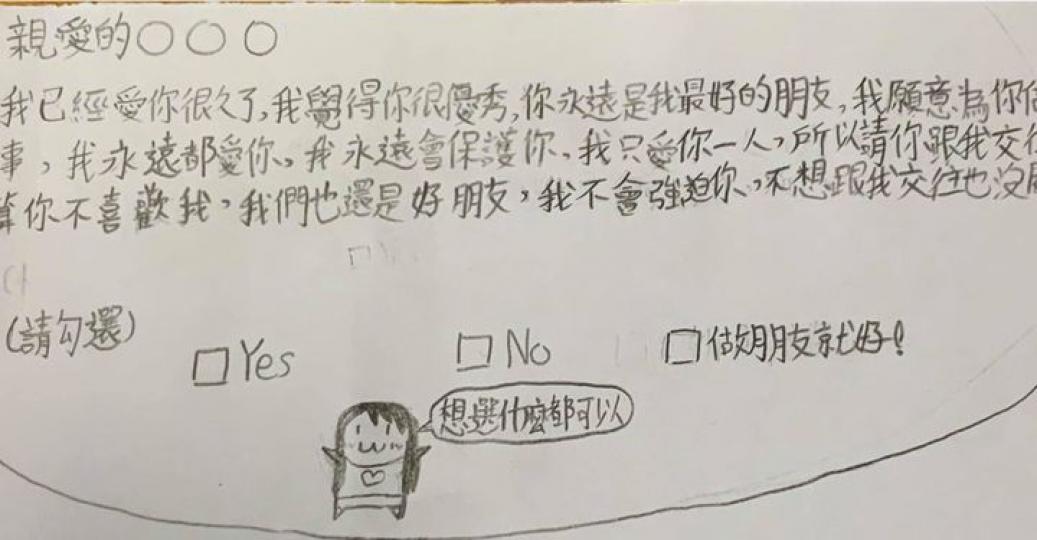 親愛的○○○
我已經愛你很久了,我覺得你很優秀,你永遠是我最好的朋友,我願意為你
事,我永遠都愛你。我永遠會保護你,我只愛你一人,所以請你跟我交往
算你不喜歡我,我們也還是好朋友,我不會強迫你,不想跟我交往也沒
(請勾選)
□Yes □No □做朋友就好!
想選什麼都可以